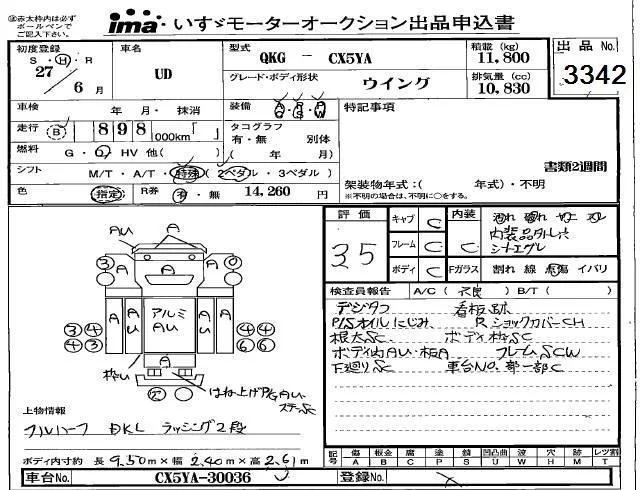 ㊟赤太枠内は必ず
ボールペンで
ご記入下さい。
ima いすゞモーターオークション出品申込書
初度登録
S・H・R
27
6月
車名
UD
型式
QKG - CX5YA
グレード・ボディ形状
ウイング
積載(kg)
11,800
排気量(cc)
10,830
出品No.
3342
車検 年・月・抹消
装備 A・P・P
C・S・W
特記事項
走行 B 898,000km「 」
タコグラフ
有・無 別体
燃料 G・O・HV 他( )
( 年 月)
書類2週間
シフト M/T・A/T・特殊(2ペダル・3ペダル)
色 指定 R券 有・無 14,260円
架装物年式:( 年式)・不明
※不明の場合は、不明に○をする。
評価
35
キャブ C
フレーム C
ボディ C
内装 C
内装品外し穴
Fガラス 割れ 線 点傷 イバリ
検査員報告 A/C( ) B/T( )
デジタコ 看板跡
P/Sオイルにじみ R ショックカバーCH
根太SC ボディ枠SC
ボディ内AU・板A フレームSCW
下廻りSC 車台NO.部一部C
AU
A
A
A
3
0
A
A
AU
アルミ
AU
A
AU
A
3 4
4 3
4 4
6 6
枠い
A
はね上げP/G AU・
ステーSC
上物情報
フルハーフ DKL ラッシング2段
ボディ内寸約 長 9.50m×幅 2.40m×高 2.61m
記号 傷 A 板金 B 腐 C 塗 P 錆 S 凹凸曲 U 波 W 穴 H 跡 M レツ割 T
車台No. CX5YA-30036
登録No.